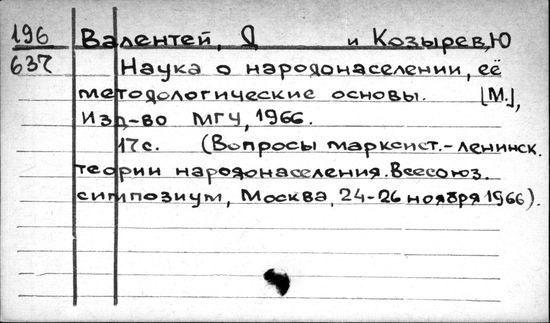 196 Валентей, Д и Козырев, Ю
637 Наука о народонаселении, её
методологические основы. [М.],
Изд-во МГУ, 1966.
17с. (Вопросы марксист.-ленинск.
теории народонаселения. Всесоюз.
симпозиум, Москва, 24-26 ноября 1966).